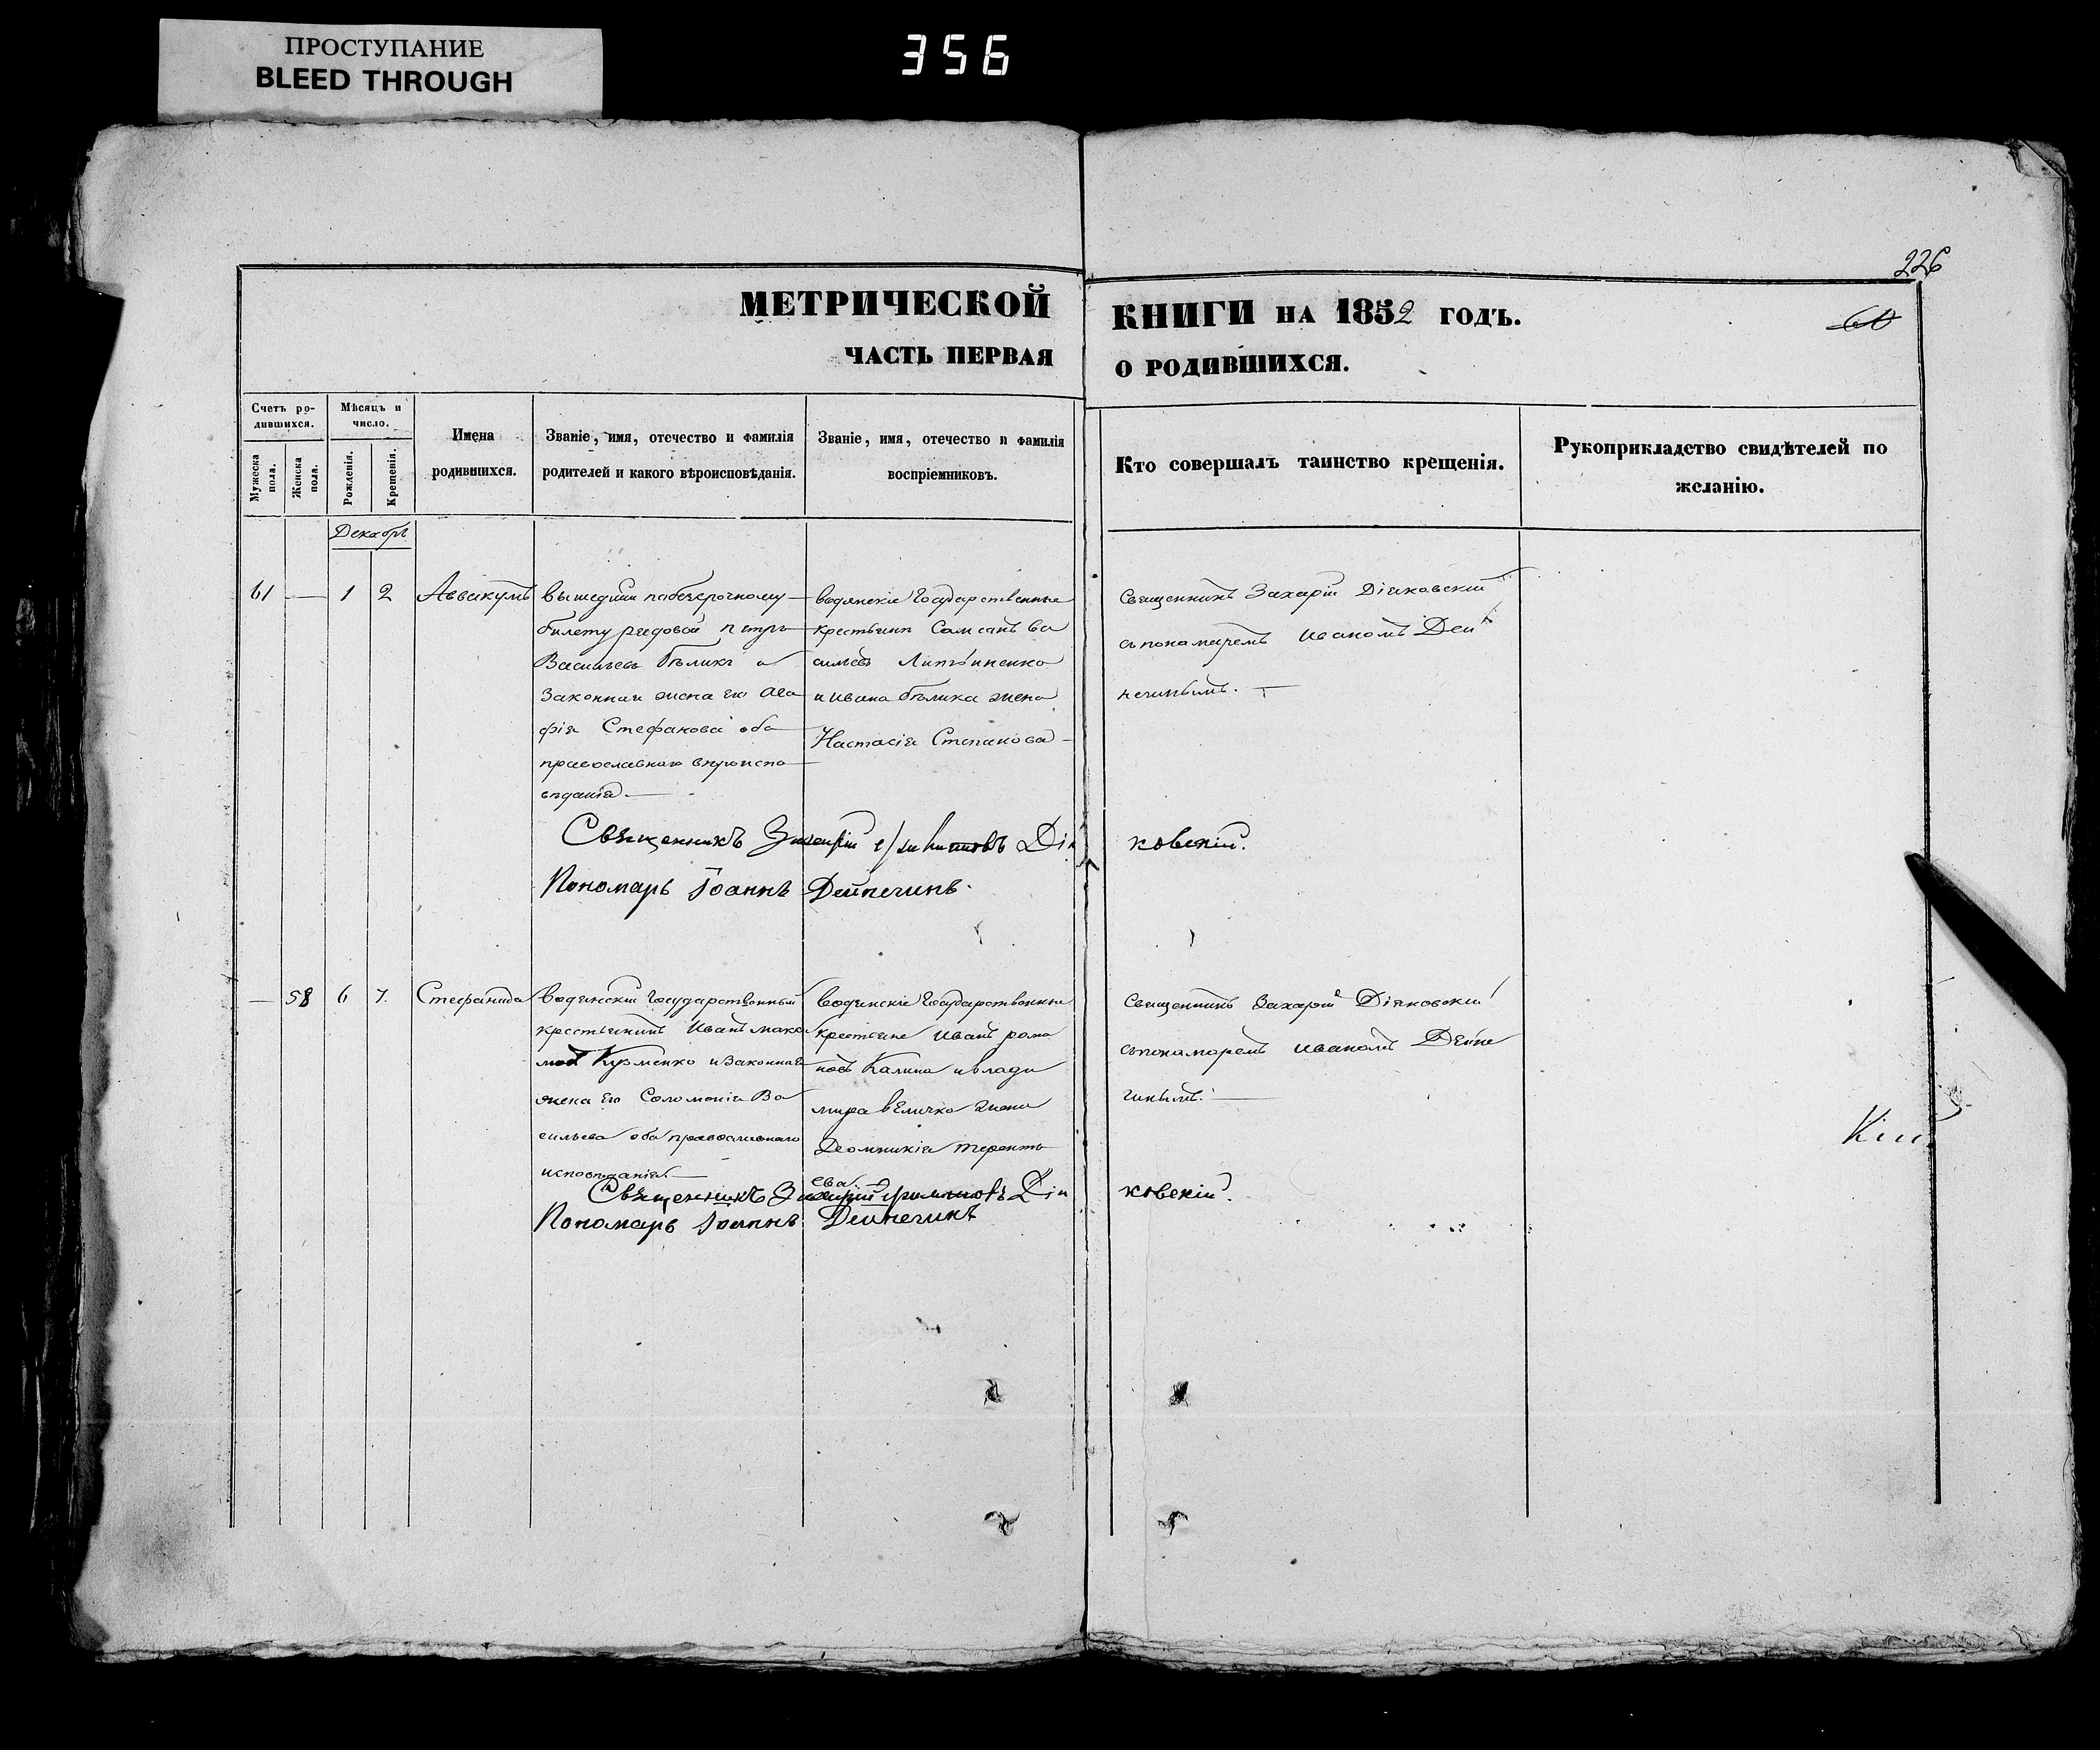 ПРОСТУПАНИЕ
BLEED THROUGH
356
226
МЕТРИЧЕСКОЙ КНИГИ НА 1852 ГОДЪ.
60
ЧАСТЬ ПЕРВАЯ О РОДИВШИХСЯ.
Счетъ ро-
дившихся.
Мужеска пола.
Женска пола.
Мѣсяцъ и
число.
Рожденія.
Крещенія.
Имена
родившихся.
Званіе, имя, отечество и фамилія
родителей и какого вѣроисповѣданія.
Званіе, имя, отечество и фамилія
воспріемниковъ.
Кто совершалъ таинство крещенія.
Рукоприкладство свидѣтелей по
желанію.
Декабрь
61 — 1 2 Аввакумъ
вышедши побезсрочному
билету рядовой петръ
Василіевъ бѣликъ и
Законная жена его Ага
фія Стефанова оба
православнаго вѣроиспо
вѣданія
водянскіе Государственные
крестьяне Самсонъ Ва
сильевъ Литвиненко
и ивана бѣлика жена
Настасія Степанова
Священникъ Захарій Діяковскій
съ пономаремъ Иваномъ Дей
нечинымъ.
Священникъ Захарій Діяковскій.
Пономарь Іоаннъ Дейнечинъ.
— 58 6 7. Стефанида
водянскій Государственный
крестьянинъ Иванъ мако
Кузменко и законная
жена его Соломонія Ва
сильева оба православнаго
исповѣданія
водянскіе Государственные
крестьяне Иванъ рома
новъ Калина и влади
мира величка жена
Домникія терентъ
ева
Священникъ Захарій Діяковскій
съ пономаремъ Иваномъ Дейне
чинымъ.
Священникъ Захарій Діяковскій.
Пономарь Іоаннъ Дейнечинъ